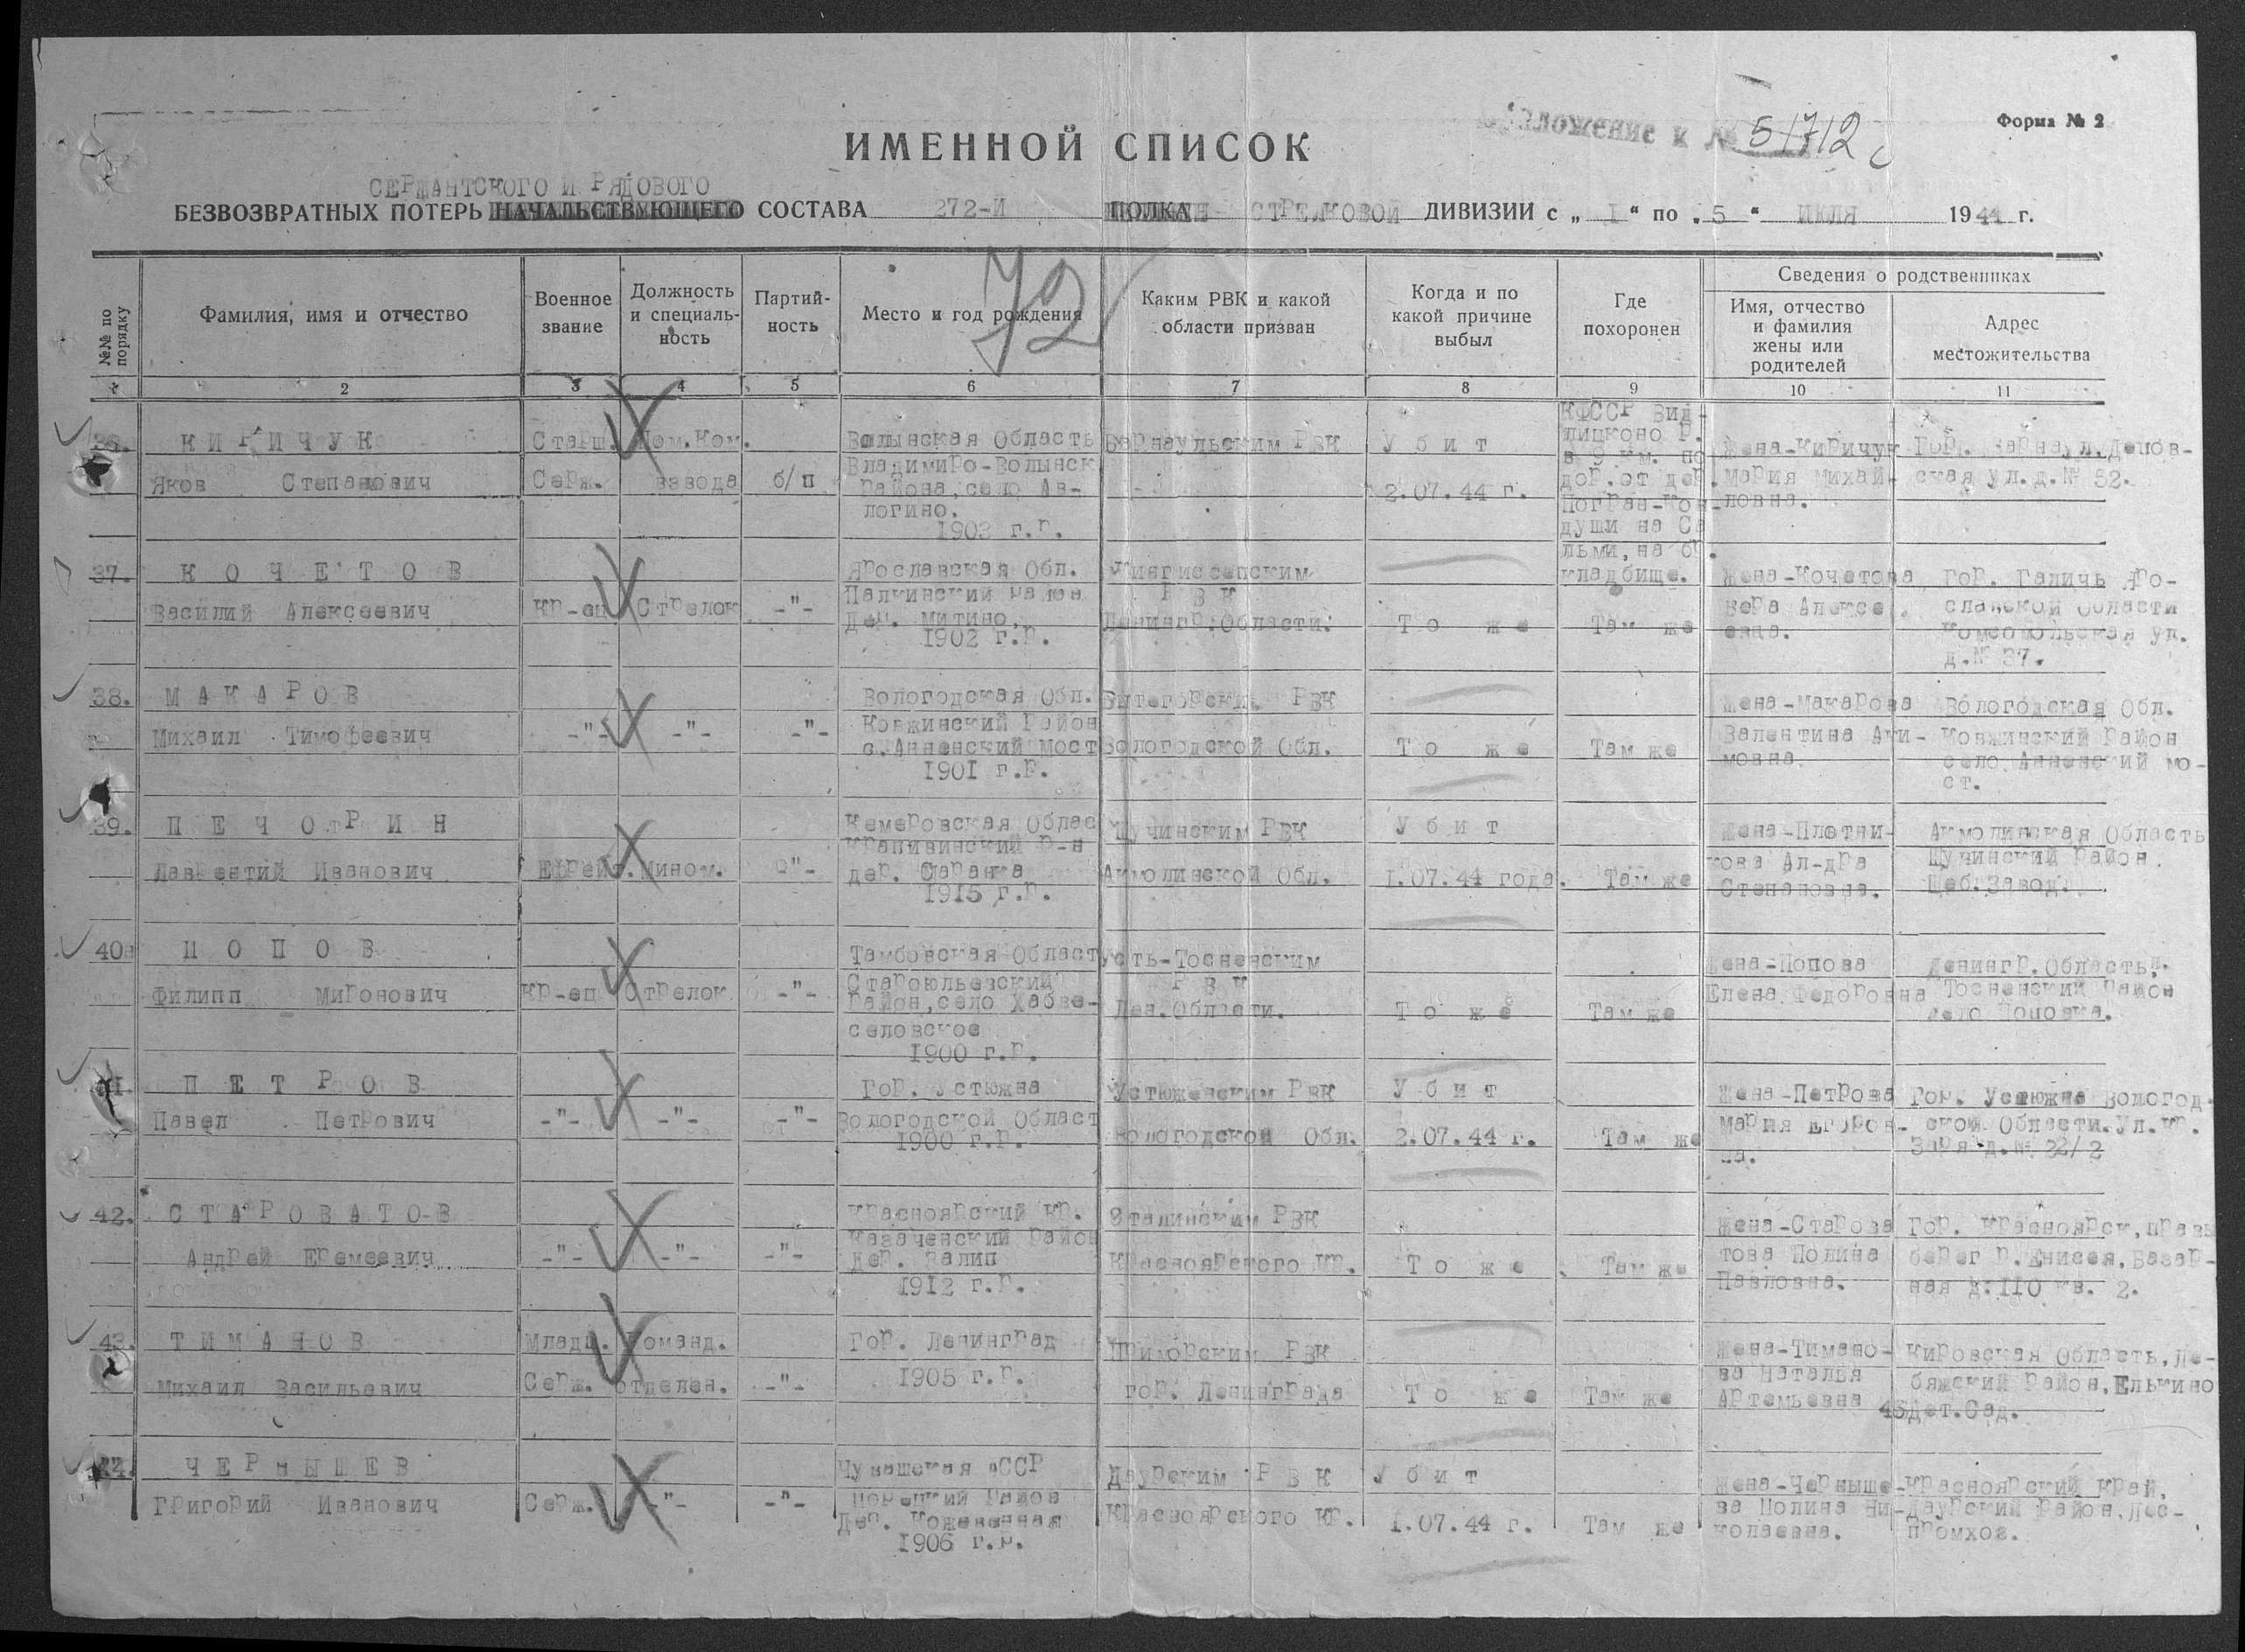 Форма № 2
51712с
ИМЕННОЙ СПИСОК
СЕРЖАНТСКОГО И РЯДОВОГО
БЕЗВОЗВРАТНЫХ ПОТЕРЬ НАЧАЛЬСТВУЮЩЕГО СОСТАВА 272-Й ПОЛКА СТРЕЛКОВОЙ ДИВИЗИИ с „ I “ по „ 5 “ ИЮЛЯ 1944 г.
72
№№ по порядку
Фамилия, имя и отчество
Военное звание
Должность и специаль-ность
Партий-ность
Место и год рождения
Каким РВК и какой области призван
Когда и по какой причине выбыл
Где похоронен
Сведения о родственниках
Имя, отчество и фамилия жены или родителей
Адрес местожительства
2 3 4 5 6 7 8 9 10 11
36. КИРИЧУК
Яков Степанович
Старш. Серж.
Пом.Ком. взвода
б/п
Волынская Область
Владимиро-Волынск
района, село Ав-
логино.
1903 г.р.
Барнаульским РВК
Убит
2.07.44 г.
КФССР Вид-
лицконо Р.
в 9 км. по
дор.от дер.
Погран-Кон-
души на Са
льми, на бр.
кладбище.
Жена-Киричук
Мария Михай-
ловна.
Гор. Барнаул, Депов-
ская ул.д.№ 32.
37. КОЧЕТОВ
Василий Алексеевич
Кр-ец
Стрелок
-"-
Ярославская Обл.
Палкинский район
Дер. Митино,
1902 г.р.
Кингисепским
РВК
Ленингр.Области.
То же
Там же
Жена-Кочетова
Вера Алексе-
евна.
Гор. Галичь Яро-
славской Области
Комсомольская ул.
д.№ 37.
38. МАКАРОВ
Михаил Тимофеевич
-"-
-"-
-"-
Вологодская Обл.
Ковжинский Район
с.Анненский мост
1901 г.р.
Вытегорским РВК
Вологодской Обл.
То же
Там же
Жена-Макарова
Валентина Аки-
мовна.
Вологодская Обл.
Ковжинский Район
село Анненский мо-
ст.
39. ПЕЧОРИН
Лаврентий Иванович
Ефрейт.
Мином.
-"-
Кемеровская Облас
Крапивинский р-н
дер. Саранка
1915 г.р.
Щучинским РВК
Акмолинской Обл.
Убит
1.07.44 года.
Там же
Жена-Плотни-
кова Ал-дра
Степановна.
Акмолинская Область
Щучинский Район.
Щеб.Завод.
40. ПОПОВ
Филипп Миронович
Кр-ец
Стрелок
-"-
Тамбовская Област
Староюльевский
район, село Хабве-
селовское
1900 г.р.
Усть-Тосненским
РВК
Лен.Области.
То же
Там же
Жена-Попова
Елена Федоровна
Ленингр.Область,
Тосненский Район
село Поповка.
41. ПЕТРОВ
Павел Петрович
-"-
-"-
-"-
Гор. Устюжна
Вологодской Област
1900 г.р.
Устюженским РВК
Вологодской Обл.
Убит
2.07.44 г.
Там же
Жена-Петрова
Мария Егоров-
на.
Гор. Устюжна Вологод-
ской Области.Ул.Кр.
Заря д.№ 22/2
42. СТАРОВАТОВ
Андрей Еремеевич
-"-
-"-
-"-
Красноярский Кр.
Казаченский Район
дер. Залип
1912 г.р.
Сталинским РВК
Красноярского Кр.
То же
Там же
Жена-Старова
това Полина
Павловна.
Гор. Красноярск, правы
берег р.Енисея, Базар-
ная д.110 кв. 2.
43. ТИМАНОВ
Михаил Васильевич
Младш. Серж.
Команд. отделен.
-"-
Гор. Ленинград
1905 г.р.
Приморским РВК
гор. Ленинграда
То же
Там же
Жена-Тимано-
ва Наталья
Артемьевна
Кировская Область, Ле-
бяжский Район, Елькино
45Дет.Сад.
44. ЧЕРНЫШЕВ
Григорий Иванович
Серж.
-"-
-"-
Чувашская АССР
Порецкий Район
Дер. Кожевенная
1906 г.р.
Даурским РВК
Красноярского Кр.
Убит
1.07.44 г.
Там же
Жена-Черныше-
ва Полина Ни-
колаевна.
Красноярский Край,
Даурский Район, Лес-
промхоз.